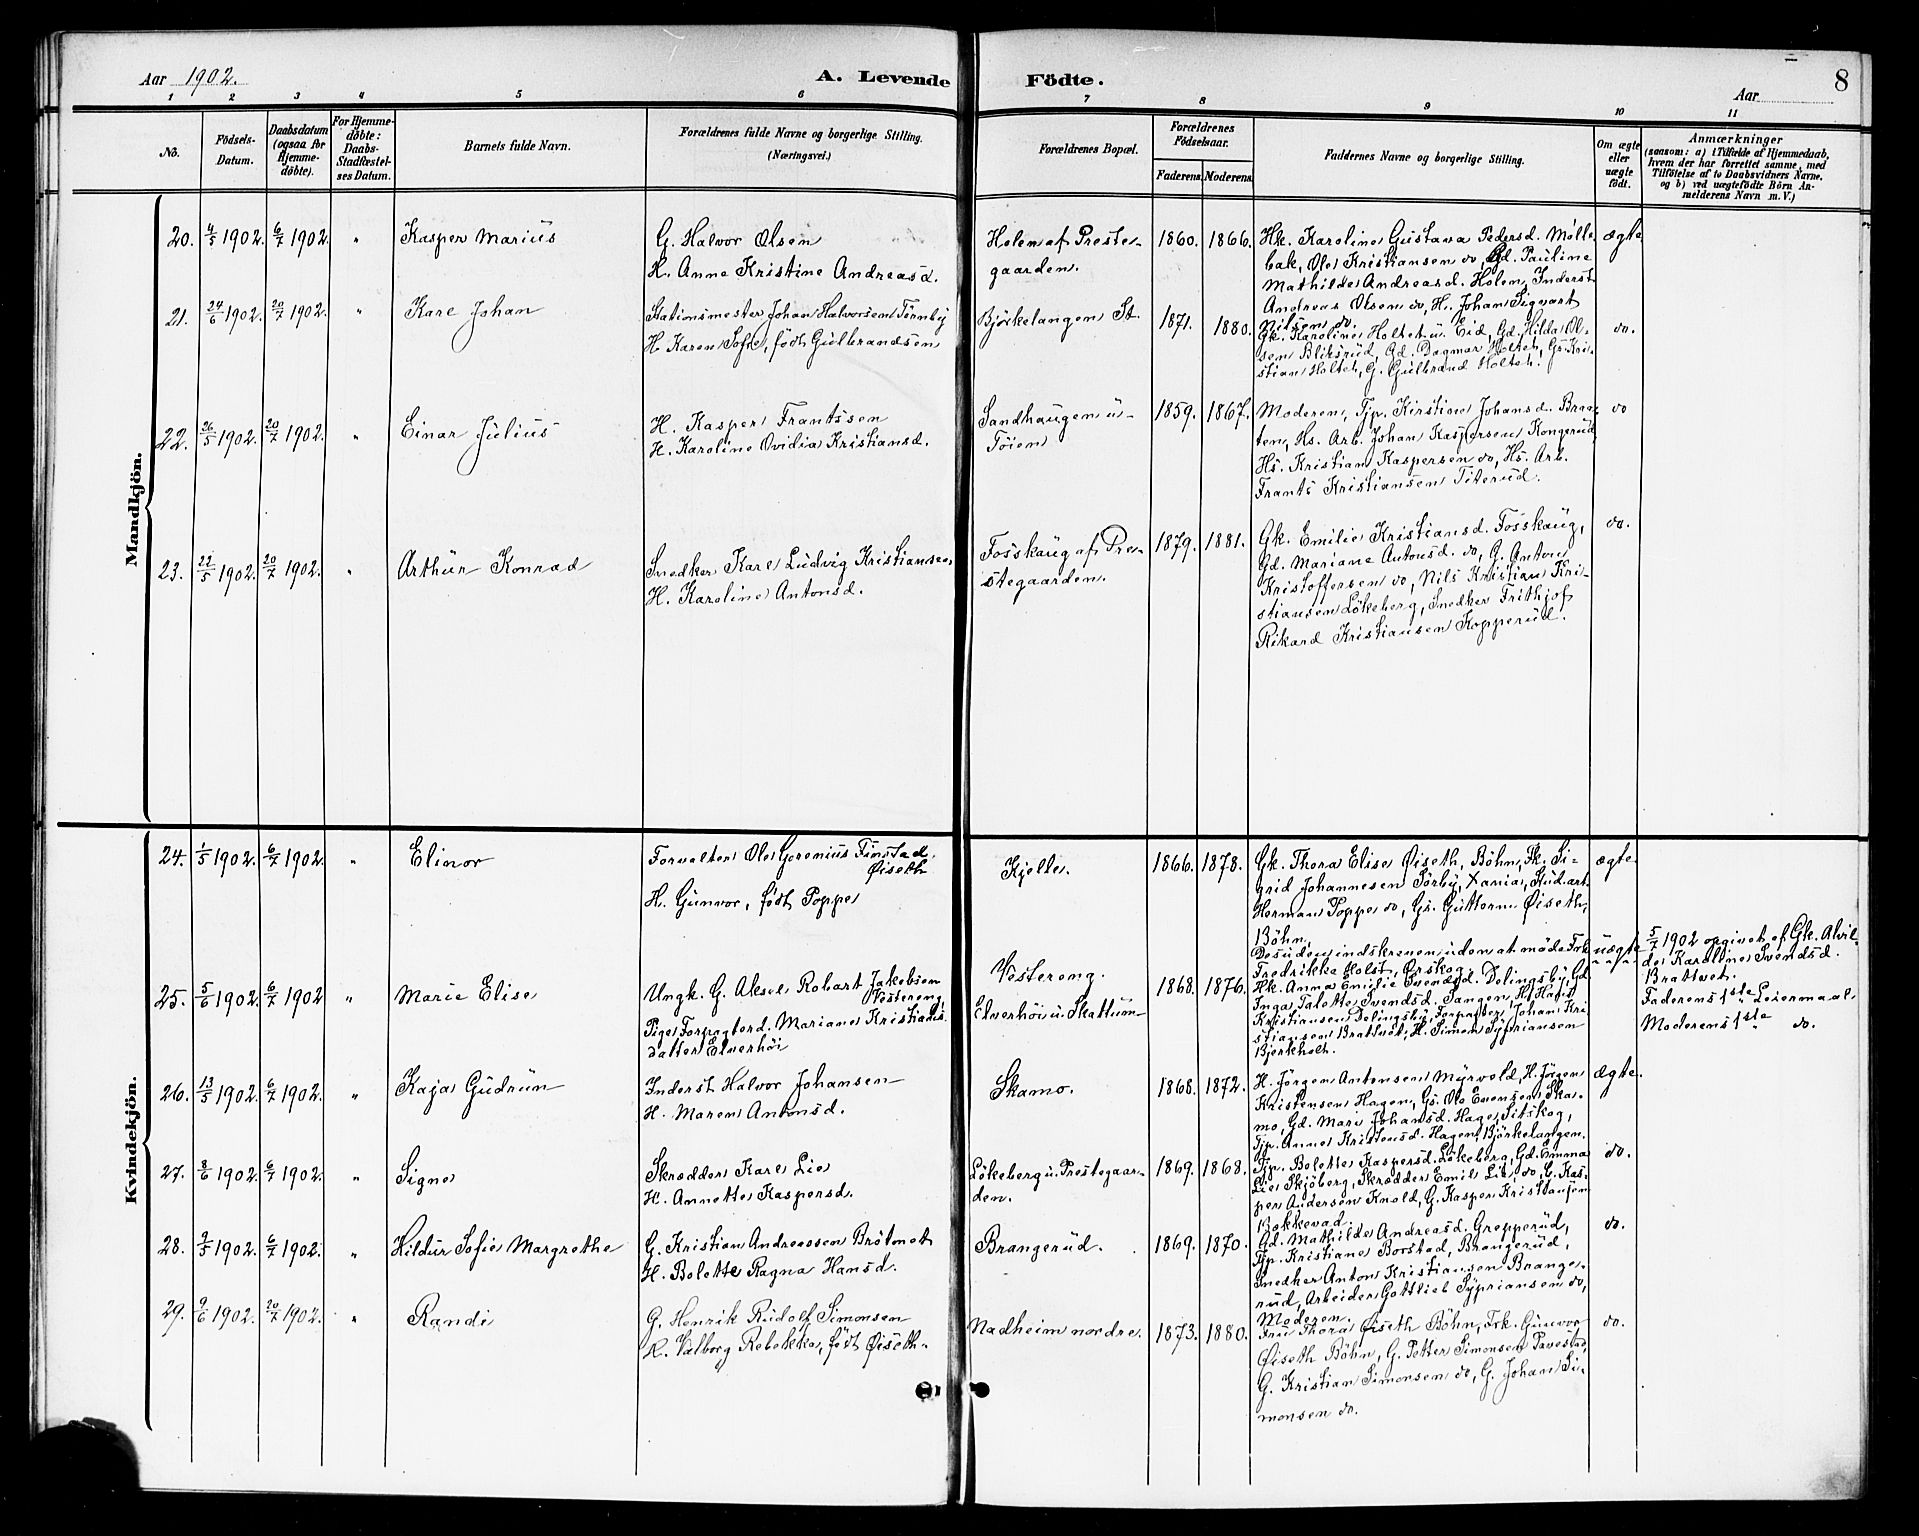 Aar 1902.
A. Levende Födte.
8
Aar
1 2 3 4 5 6 7 8 9 10 11
No.
Födsels-Datum.
Daabsdatum (ogsaa for Hjemme-döbte).
For Hjemme-döbte: Daabs-Stadfæstel-ses Datum.
Barnets fulde Navn.
Forældrenes fulde Navne og borgerlige Stilling.
(Næringsvei.)
Forældrenes Bopæl.
Forældrenes Födselsaar.
Faderens.
Moderens.
Faddernes Navne og borgerlige Stilling.
Om ægte eller uægte födt.
Anmærkninger
(saasom: a) i Tilfælde af Hjemmedaab,
hvem der har forrettet samme, med
Tilföielse af to Daabsvidners Navne,
og b) ved uægtefödte Börn An-
melderens Navn m. V.)
Mandkjön.
20. 4/5 1902. 6/7 1902. "
Kasper Marius
G. Halvor Olsen
H. Anne Kristine Andreasd.
Holen af Preste-
gaarden.
1860. 1866.
Hk. Karoline Gustava Pedersd. Mølle-
bak, Ole Kristiansen do, Gd. Pauline
Mathilde Andreasd. Holen, Inderst
Andreas Olsen do, H. Johan Sigvart
Nilsen do.
ægte
21. 24/6 1902. 20/7 1902. "
Kare Johan
Stationsmester Johan Halvorsen Tørnby
H. Karen Sofie, født Gulbrandsen
Bjørkelangen St.
1871. 1880.
Gk. Karoline Holtet u. Eid, Gd. Hilda Ol-
sen Bliksrud, Gd. Dagmar Holtet, Gs. Kri-
stian Holtet, G. Gulbrand Holtet.
do.
22. 26/5 1902. 20/7 1902. "
Einar Julius
H. Kasper Frantssen
H. Karoline Ovidia Kristiansd.
Sandhaugen u-
Tøien
1859. 1867.
Moderen, Tjp. Kirstine Johansd. Braa-
ten, Hs. Arb. Johan Kaspersen Kongerud,
Hs. Kristian Kaspersen do, Hs. Arb.
Frants Kristiansen Titerud.
do
23. 22/5 1902. 20/7 1902. "
Arthur Konrad
Snedker Karl Ludvig Kristiansen,
H. Karoline Antonsd.
Fosskaug af Pre-
stegaarden.
1879. 1881.
Gk. Emilie Kristiansd. Fosskaug,
Gd. Mariane Antonsd. do, G. Anton
Kristoffersen do, Nils Kristian Kri-
stiansen Løkeberg, Snedker Frithjof
Rikard Kristiansen Kopperud.
do.
Kvindekjön.
24. 1/5 1902. 6/7 1902. "
Elinor
Forvalter Ole Goremius Finstad
Øiseth
H. Gunvor, født Poppe
Kjelle.
1866. 1878.
Gk. Thora Elise Øiseth, Böhn, Fk. Si-
grid Johannesen Sörby, Xania, Stud. art.
Herman Poppe do, Gs. Guttorm Øiseth,
Böhn,
Desuden indskreven uden at møde Frk.
Fredrikke Holst, Ørskog.
ægte
25. 5/6 1902. 6/7 1902 "
Marie Elise
Ungk. G. Aksel Robart Jakobsen
Vestereng,
Pige Forpagterd. Mariane Kristians-
datter Elverhöi
Vestereng.
Elverhöi u. Skattum
1868. 1876.
Hk. Anna Emilie Svendsd. Delingsby, Gd.
Inga Talette Svendsd. Tangen, H. Hans
Kristiansen Delingsby, Forpagter Johan Kri-
stiansen Brattvet, H. Simon Sypriansen
Bjerkholt.
uægte
5/7 1902 opgivet af Gk. Alvil-
de Karolline Svendsd.
Brattvet.
Faderens 1ste Leiermaal,
Moderens 1ste do.
26. 13/5 1902. 6/7 1902. "
Kaja Gudrun
Inderst Halvor Johansen
H. Maren Antonsd.
Skamo.
1868. 1872.
H. Jörgen Antonsen Myrvold, H. Jörgen
Kristensen Hagen, Gs. Ole Evensen Ska-
mo, Gd. Mari Johansd. Hage, Sitskog,
Tjp. Anne Kristensd. Hagen, Björkelangen.
ægte.
27. 8/6 1902. 6/7 1902. "
Signe
Skrædder Karl Lie
H. Annette Kaspersd.
Lökeberg u. Prestegaar-
den.
1869. 1868.
Tjp. Bolette Kaspersd. Lökeberg, Gd. Emma
Lie Skjöberg, Skrædder Emil Lie, do, G. Kas-
per Andersen Knold, G. Kasper Kristiansen
Bakkevad.
do.
28. 9/5 1902. 6/7 1902. "
Hildur Sofie Margrethe
G. Kristian Andreassen Bråtnet
H. Bolette Ragna Hansd.
Brangerud.
1869. 1870.
Gd. Mathilde Andreasd. Grepperud,
Tjp. Kristiane Borstad, Brangerud,
Snedker Anton Kristiansen Brange-
rud, Arbeider Gottlieb Sypriansen do,
Moderen.
do.
29. 9/6 1902. 20/7 1902. "
Randi
G. Henrik Rudolf Simonsen
H. Valborg Rebekka, født Øiseth.
Nadheim nordre.
1873. 1880.
Fru Thora Øiseth Böhn, Frk. Gunvor
Øiseth Böhn, G. Petter Simonsen Tavestad,
G. Kristian Simonsen do, G. Johan Si-
monsen do.
do.